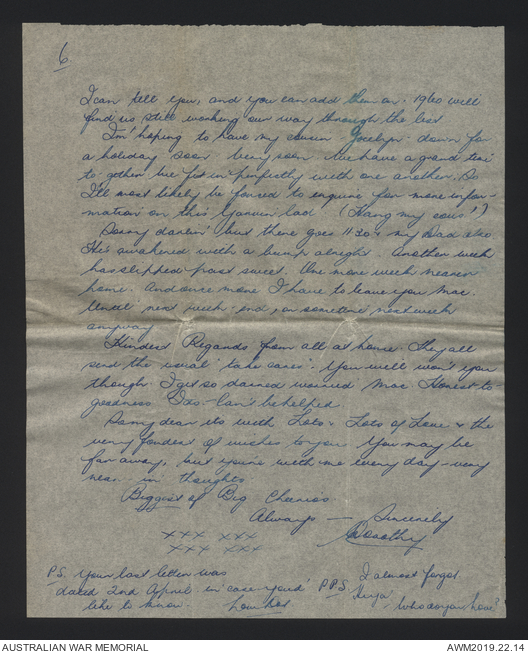 6.
I can tell you, and you can add them on. 1960 will
find us still working our way through the list
I'm hoping to have my cousin Jocelyn down for
a holiday soon very soon. We have a grand time
to gether. We fit in perfectly with one another. So
I'll most likely be forced to inquire for more infor-
mation on this lad! (Hang my sous!")
Sorry darlin' but there goes 11-30 & my Dad also
He's awakened with a bump alright. Another week
has slipped past sweet. One more week nearer
home. And once more I have to leave you Mac.
Until next week-end, or sometime next week
anyway
Kindest Regards from all at home. They all
send the usual "take cares". You will won't you
though. I get so darned worried Mac. Honest-to-
goodness I do. Can't be helped.
Sorry dear its with Lots & Lots of Love & the
very fondest of wishes to you. You may be
far away, but you're with me every day - very
near. in thoughts
Biggest of Big Cheerios
Always — Sincerely
Dorothy
XXX XXX
XXX XXX
P.S. Your last letter was
dated 2nd April in case you'd
like to know. Love Dot
P.P.S. I almost forgot
"Heya'
Who do you love?
AUSTRALIAN WAR MEMORIAL
AWM2019.22.14